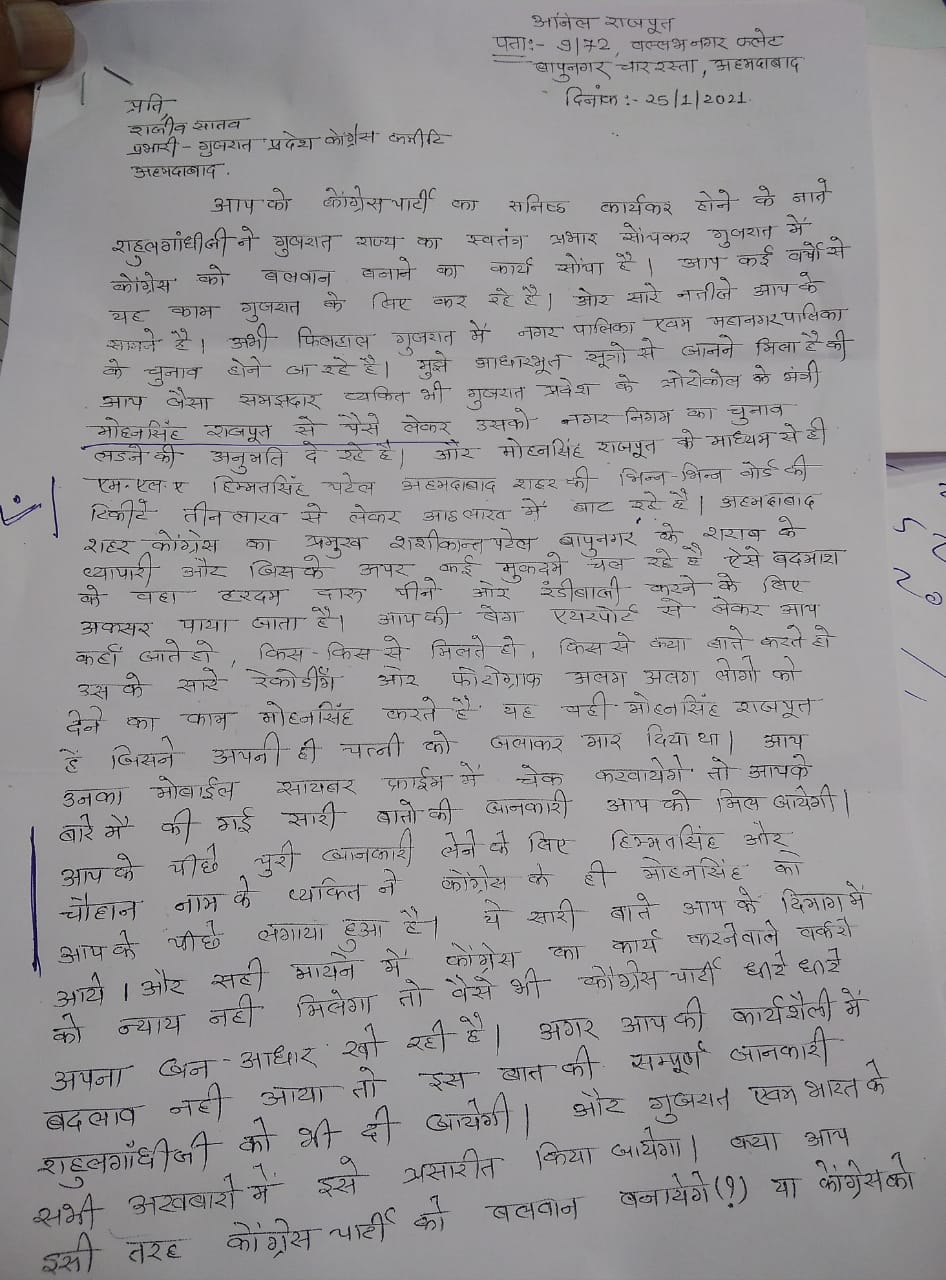 अनिल राजपूत
पता:- 9/72, वल्लभनगर फ्लेट
बापुनगर चार रस्ता, अहमदाबाद
दिनांक:- 25/1/2021.
प्रति,
राजीव सातव
प्रभारी - गुजरात प्रदेश कोंग्रेस कमीटि
अहमदाबाद.
आप को कोंग्रेस पार्टी का सनिष्ठ कार्यकर होने के नाते
राहुलगांधीजी ने गुजरात राज्य का स्वतंत्र प्रभार सोंपकर गुजरात में
कोंग्रेस को बलवान बनाने का कार्य सोंपा है। आप कई वर्षो से
यह काम गुजरात के लिए कर रहे है। ओर सारे नतीजे आप के
सामने है। अभी फिलहाल गुजरात में नगर पालिका एवम महानगरपालिका
के चुनाव होने जा रहे है। मुझे आधारभूत सूत्रो से जानने मिला है की
आप जैसा समझदार व्यकित भी गुजरात प्रदेश के प्रोटोकोल के मंत्री
मोहनसिंह राजपूत से पैसे लेकर उसको नगर निगम का चुनाव
लडने की अनुमति दे रहे है। और मोहनसिंह राजपूत के माध्यम से ही
एम.एल.ए हिम्मतसिंह पटेल अहमदाबाद शहर की भिन्न-भिन्न वोर्ड की
टिकीटे तीन लाख से लेकर आठ लाख में बाट रहे है। अहमदाबाद
शहर कोंग्रेस का प्रमुख शशीकान्त पटेल बापुनगर के शराब के
व्यापारी और जिस के उपर कई मुकदमे चल रहे है ऐसे बदमाश
के वहा हरदम दारु पीने ओर रंडीबाजी करने के लिए
अकसर पाया जाता है। आप की बेग एयरपोर्ट से लेकर आप
कहाँ जाते हो, किस-किस से मिलते हो, किस से क्या बाते करते हो
उस के सारे रेकोर्डींग ओर फोटोग्राफ अलग अलग लोगो को
देने का काम मोहनसिंह करते है यह वही मोहनसिंह राजपूत
है जिसने अपनी ही पत्नी को जलाकर मार दिया था। आप
उनका मोबाईल सायबर क्राईम में चेक करवायेगे तो आपके
बारे मे की गई सारी बातो की जानकारी आप को मिल जायेगी।
आप के पीछे पुरी जानकारी लेने के लिए हिम्मतसिंह और
चौहान नाम के व्यकित ने कोंग्रेस के ही मोहनसिंह को
आप के पीछे लगाया हुआ है। ये सारी बाते आप के दिमाग में
आये। और सही मायने में कोंग्रेस का कार्य करनेवाले वर्करो
को न्याय नही मिलेगा तो वैसे भी कोंग्रेस पार्टी धीरे धीरे
अपना जन-आधार खो रही है। अगर आप की कार्यशैली में
बदलाव नही आया तो इस बात की सम्पूर्ण जानकारी
राहुलगाँधीजी को भी दी जायेगी। और गुजरात एवम भारत के
सभी अखबारो में इसे प्रसारीत किया जायेगा। क्या आप
इसी तरह कोंग्रेस पार्टी को बलवान बनायेगे (?) या कोंग्रेस को